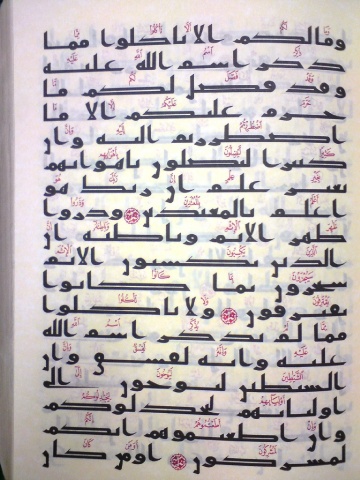 وما لكم الا تاكلوا مما
ذكر اسم الله عليه
وقد فصل لكم ما
حرم عليكم الا ما
اضطررتم اليه وان
كثيرا ليضلون باهوائهم
بغير علم ان ربك هو
اعلم بالمعتدين وذروا
ظهر الاثم وباطنه ان
الذين يكسبون الاثم
سيجزون بما كانوا
يقترفون ولا تاكلوا
مما لم يذكر اسم الله
عليه وانه لفسق وان
الشيطين ليوحون الى
اوليائهم ليجدلوكم
وان اطعتموهم انكم
لمشركون اومن كان